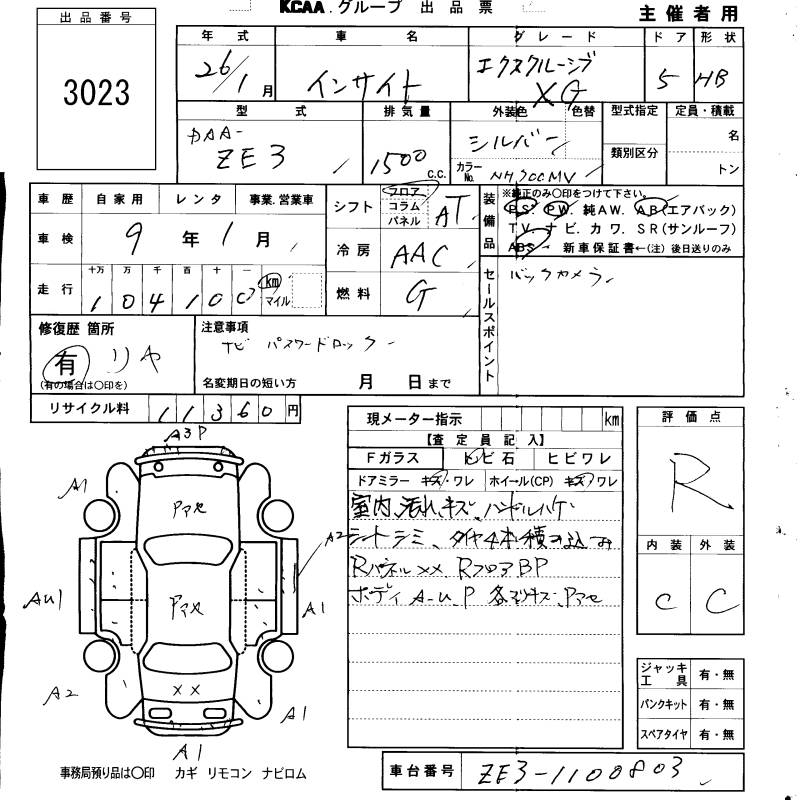 KCAA.グループ 出品票
主催者用
出品番号
3023
年式 車名 グレード ドア 形状
26/1月 インサイト エクスクルーシブ XG 5 HB
型式 排気量 外装色 色替 型式指定 定員・積載
DAA-ZE3 1500 C.C. シルバー 名
カラーNo. NH700MV 類別区分 トン
車歴 自家用 レンタ 事業.営業車
シフト フロア コラム パネル AT
装備品 ※純正のみ〇印をつけて下さい。
PS. PW. 純AW. AB(エアバック)
TV. ナビ. カワ. SR(サンルーフ)
ABS 新車保証書←(注)後日送りのみ
車検 9年1月
冷房 AAC
走行 十万 万 千 百 十 一
104100 km マイル
燃料 G
セールスポイント バックカメラ
修復歴 箇所
有 リヤ
(有の場合は〇印を)
注意事項
ナビ パスワードロック
名変期日の短い方 月 日まで
リサイクル料 11360円
現メーター指示 km
【査定員記入】
Fガラス トビ石 ヒビワレ
ドアミラー キズ・ワレ ホイール(CP) キズ・ワレ
室内汚れ、キズ、ハンドルハゲ
シートシミ、タイヤ4本積み込み
Rパネル×× RフロアBP
ボディA-U.P 各マドキズ、アマセ
評価点
R
内装 外装
C C
ジャッキ工具 有・無
パンクキット 有・無
スペアタイヤ 有・無
A3P
A1
アマセ
A2
アマセ
AU1
A1
A2
××
A1
A1
事務局預り品は〇印 カギ リモコン ナビロム
車台番号 ZE3-1100803